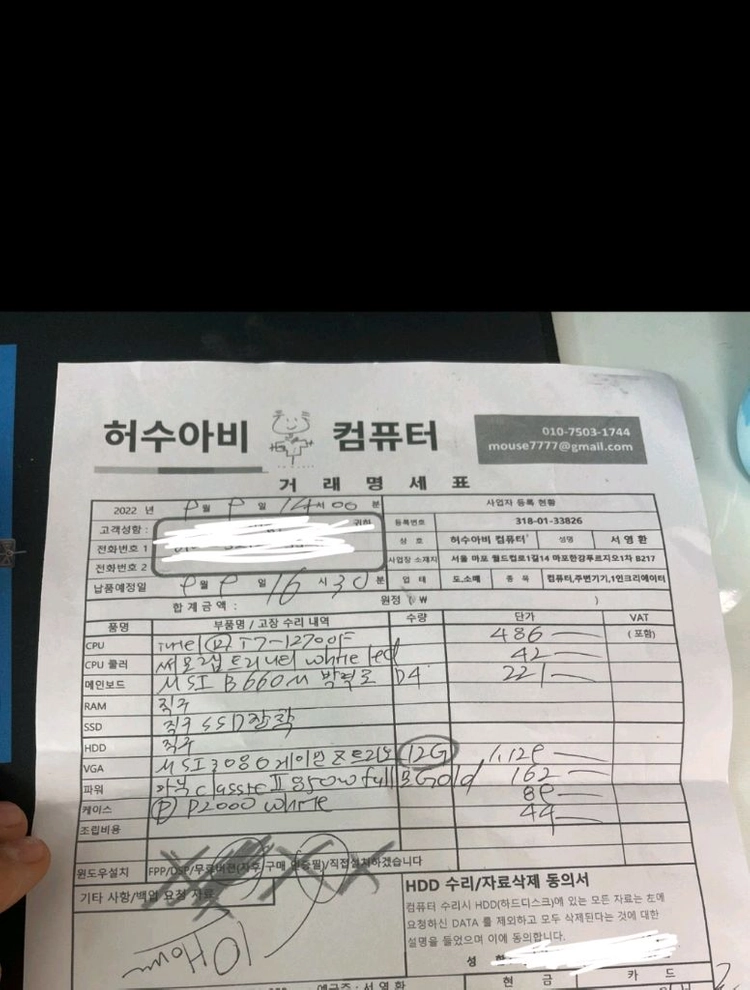 허수아비 컴퓨터
010-7503-1744
mouse7777@gmail.com
거 래 명 세 표
2022 년 월 일 14시 00 분
사업자 등록 현황
고객성함 : 귀하
등록번호 318-01-33826
전화번호 1
상 호 허수아비 컴퓨터 성명 서영환
전화번호 2
사업장 소재지 서울 마포 월드컵로1길14 마포한강푸르지오1차 B217
납품예정일 월 일 16 시 30 분
업 태 도.소매 종 목 컴퓨터,주변기기,1인크리에이터
합계금액 : 원정 ( ₩ )
품명 부품명 / 고장 수리 내역 수량 단가 VAT
CPU intel (P) i7-12700F 486 (포함)
CPU 쿨러 써모랩 트리니티 white led 42
메인보드 MSI B660M 박격포 D4 221
RAM 직구
SSD 직구 SSD장착
HDD 직구
VGA MSI 3080 게이밍 Z 트리오 12G
파워 classic II 850w full Gold 162
케이스 (P) P2000 white
조립비용 44
윈도우설치 FPP/DSP/무료버전(차후 구매 인증필)/직접설치하겠습니다
기타 사항/백업 요청 자료
HDD 수리/자료삭제 동의서
컴퓨터 수리시 HDD(하드디스크)에 있는 모든 자료는 초에
요청하신 DATA 를 제외하고 모두 삭제된다는 것에 대한
설명을 들었으며 이에 동의합니다.
성
예금주 : 서영환
현 금 카 드